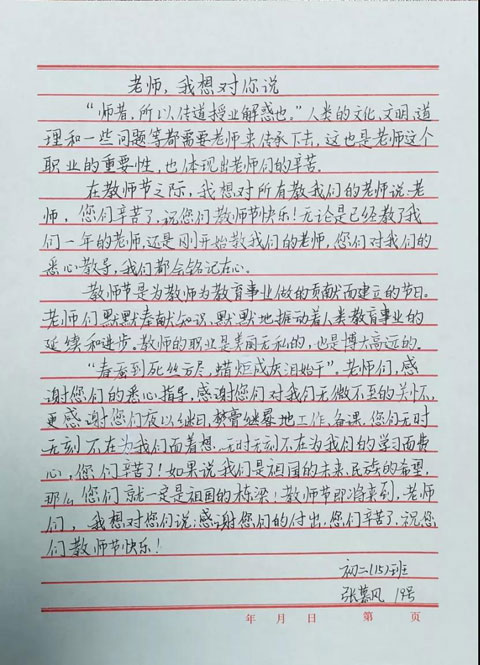 老师，我想对你说
“师者，所以传道授业解惑也。”人类的文化、文明、道
理和一些问题等都需要老师来传承下去，这也是老师这个
职业的重要性，也体现出老师们的辛苦。
在教师节之际，我想对所有教我们的老师说：老
师，您们辛苦了，祝您们教师节快乐！无论是已经教了我
们一年的老师，还是刚开始教我们的老师，您们对我们的
悉心教导，我们都会铭记在心。
教师节是为教师为教育事业做的贡献而建立的节日。
老师们默默奉献知识，默默地推动着人类教育事业的
延续和进步。教师的职业是美闭无私的，也是博大高远的。
“春蚕到死丝方尽，蜡炬成灰泪始干”，老师们，感
谢您们的悉心指导，感谢您们对我们无微不至的关怀，
更感谢您们夜以继日，焚膏继晷地工作、备课，您们无时
无刻不在为我们而着想，无时无刻不在为我们的学习而费
心，您们辛苦了！如果说我们是祖国的未来，民族的希望，
那么您们就一定是祖国的栋梁！教师节即将来到，老师
们，我想对您们说：感谢您们的付出，您们辛苦了，祝您
们教师节快乐！
初二（15）班
张慕风 19号
年 月 日 第 页